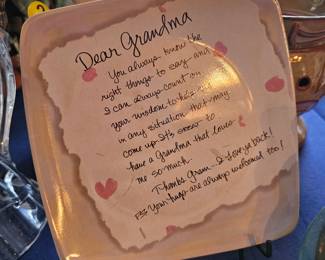 Dear Grandma
You always know the
right things to say and
I can always count on
your wisdom to
in any situation that may
come up. It's
have a Grandma that loves
me so much.
Thanks Gram - I love ya back!
P.S. Your hugs are always welcomed too!